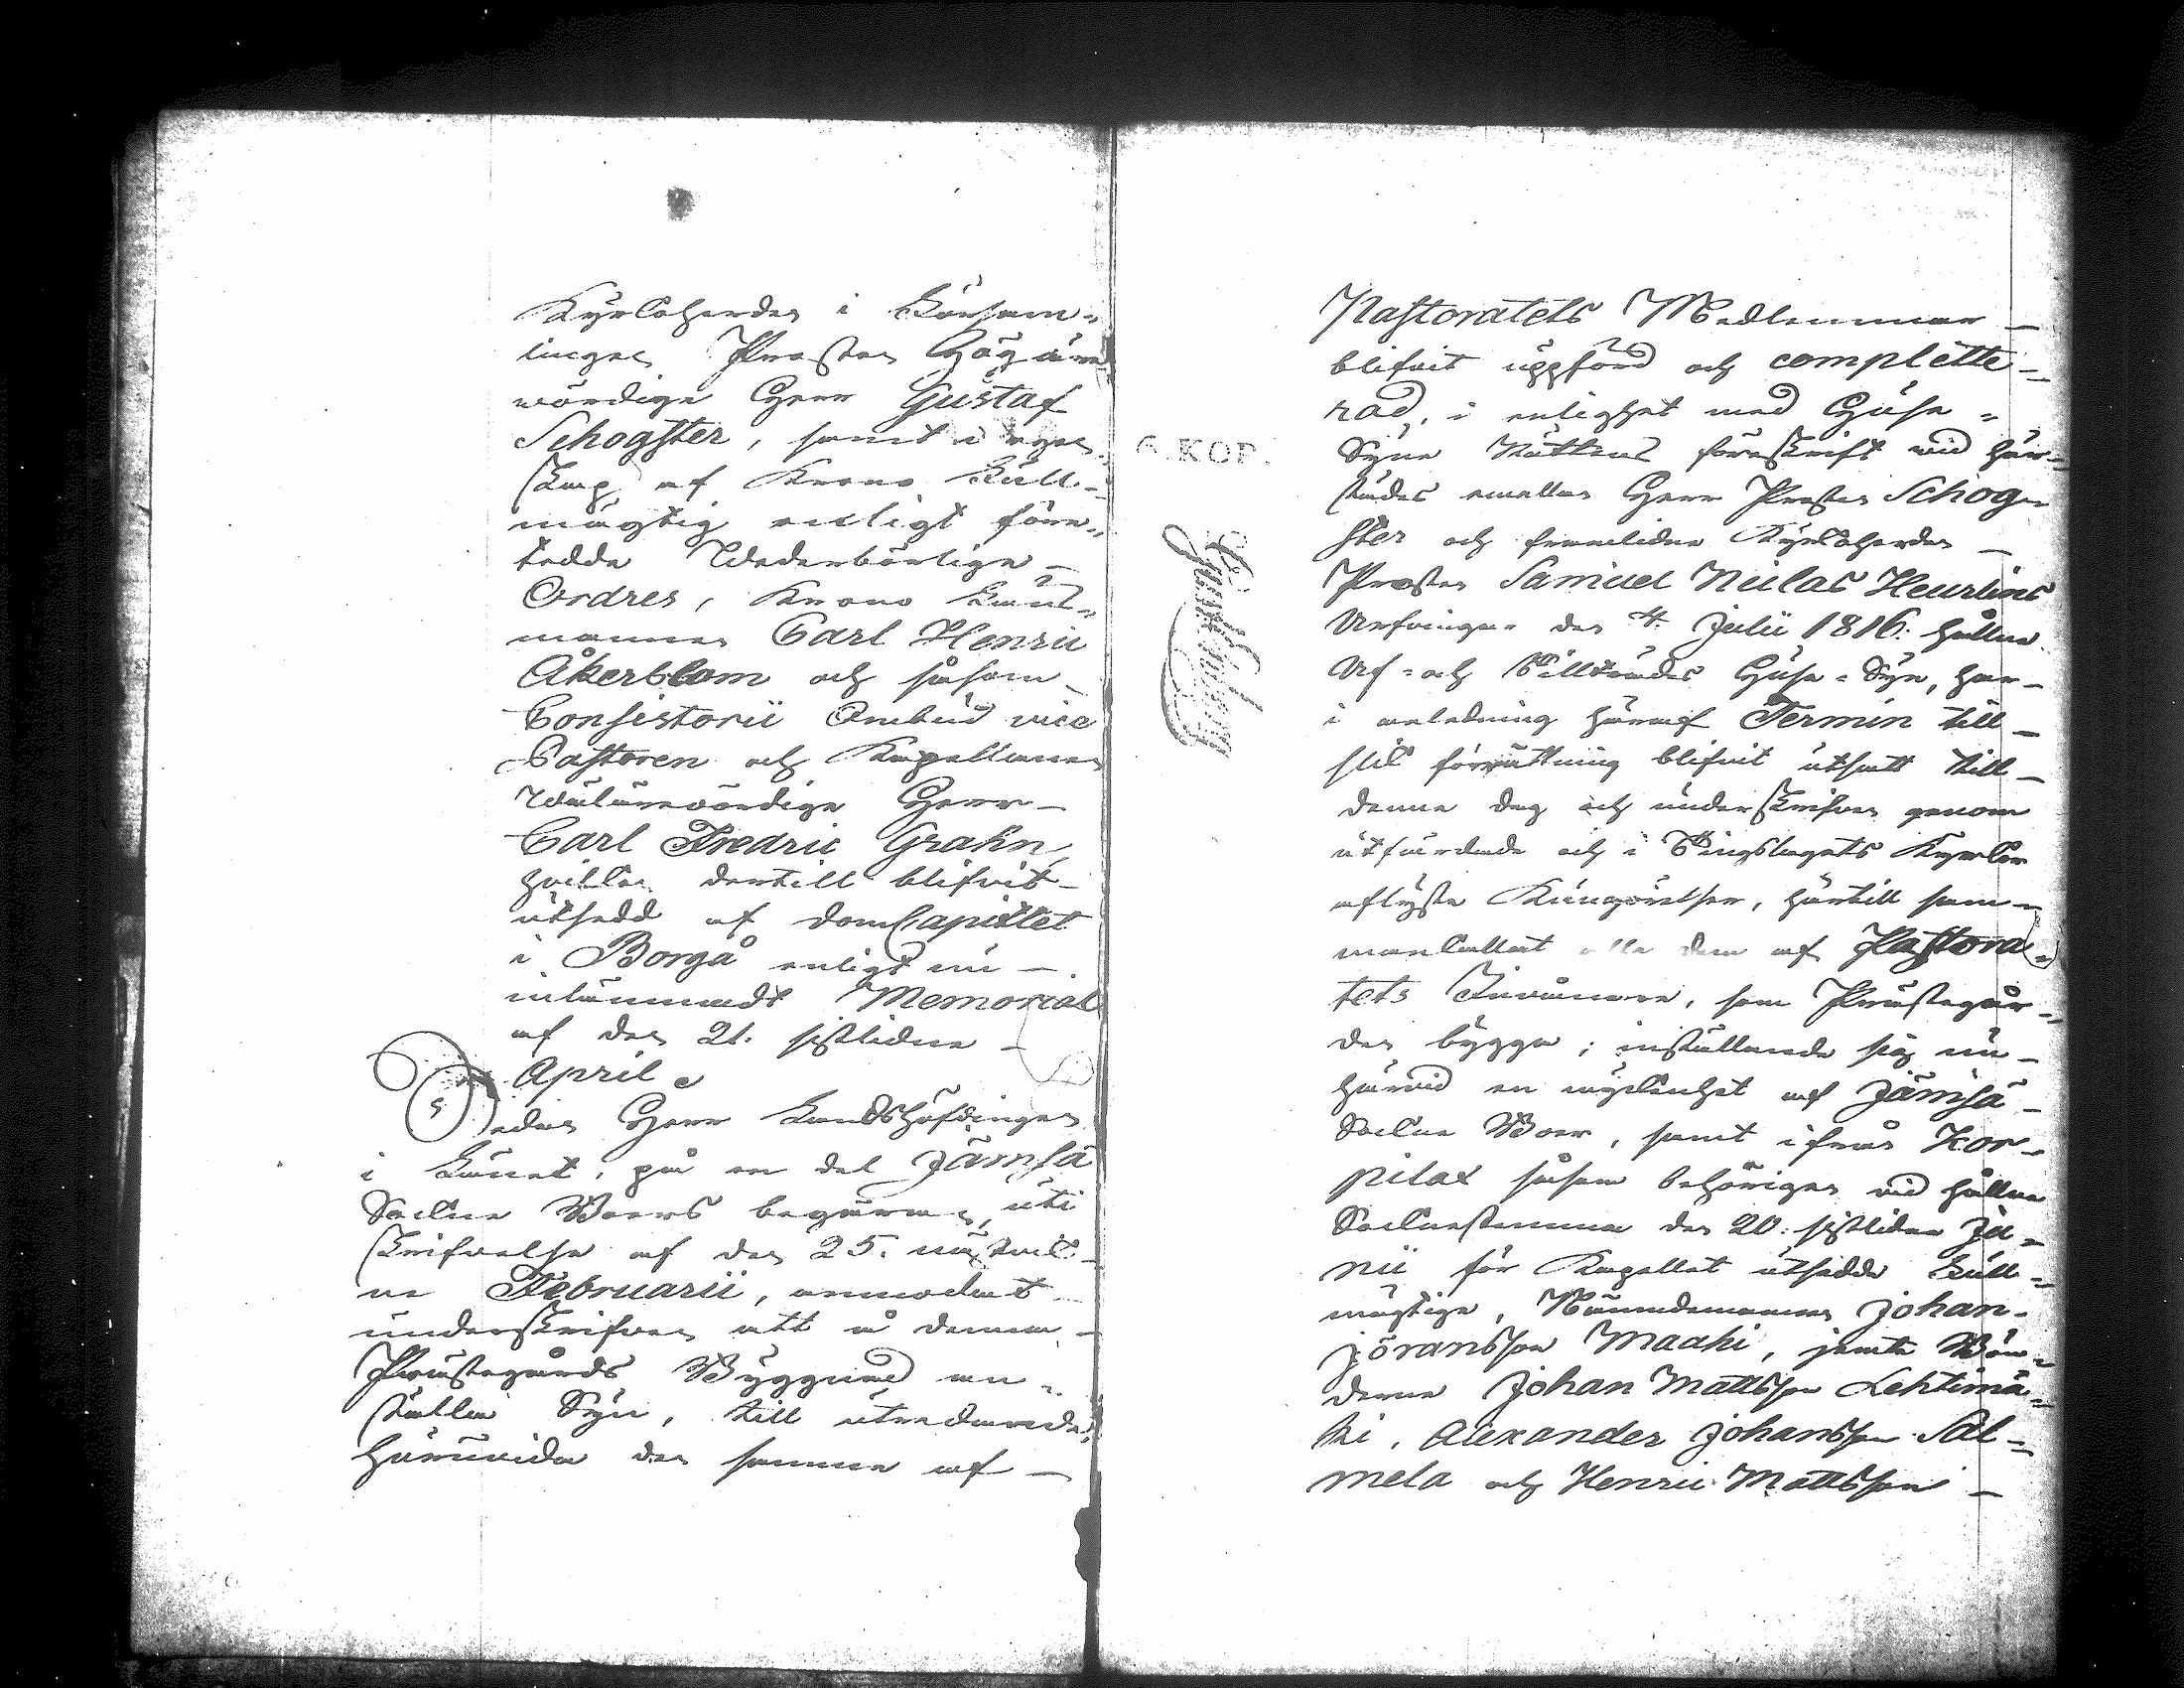 Kyrkoherden i Försam-
lingen Prosten Högäre
wördige Herr Gustaf
Schogster, samt i egen
skap af Krono Full-
mägtig enligt före-
tedde Wederbörlige
Ordres, Krono Läns-
mannen Carl Henric
Åkerblom och såsom
Consistorii Ombud vice
Pastoren och Kapellanen
Wälärewördige Herr
Carl Fredric Grahn,
hvilken dertill blifvit
utsedd af DomCapitlet
i Borgå enligt nu
inlämnadt Memorial
af den 21. sistlidne
April.
Sedan Herr Landshöfdingen
i Länet, på en del Jämsä
Sockne Boers begäran, uti
skrifvelse af den 25. nästvik-
ne Februarii, anmodat
underskrifven att å denna
Prästegårds Byggnad an-
ställa Syn, till utredande,
huruvida den samma af
Pastoratets Medlemmar
blifvit uppförd och complette-
rad, i enlighet med Huse-
Syne Rättens föreskrift vid här-
städes emellan Herr Prosten Schog-
ster och framlidne Kyrkoherden
Prosten Samuel Niclas Heurlins
Arfvingar den 4. Julii 1816. hållne
Af- och Tillträdes Huse-Syn, har
i anledning häraf Termin till
slik förrättning blifvit utsatt till
denne dag och underskrifven genom
utfärdade och i Tingslagets Kyrkor
uplyste Kungörelser, härtill sam-
mankallat alla dem af Pastora-
tets Invånare, som Prästegår-
den bygga; inställande sig nu
härvid en myckenhet af Jämsä
Sockne Boer, samt ifrån Kor-
pilax såsom behörigen vid hållne
Sockenstämma den 20. sistlidne Ju-
nii för Kapellet utsedde Full-
mägtige, Nämndemannen Johan
Jöransson Maahi, jemte Bön-
derne Johan Mattsson Lehtimä-
ki, Alexander Johansson Sal-
mela och Henric Mattsson
6. KOP.